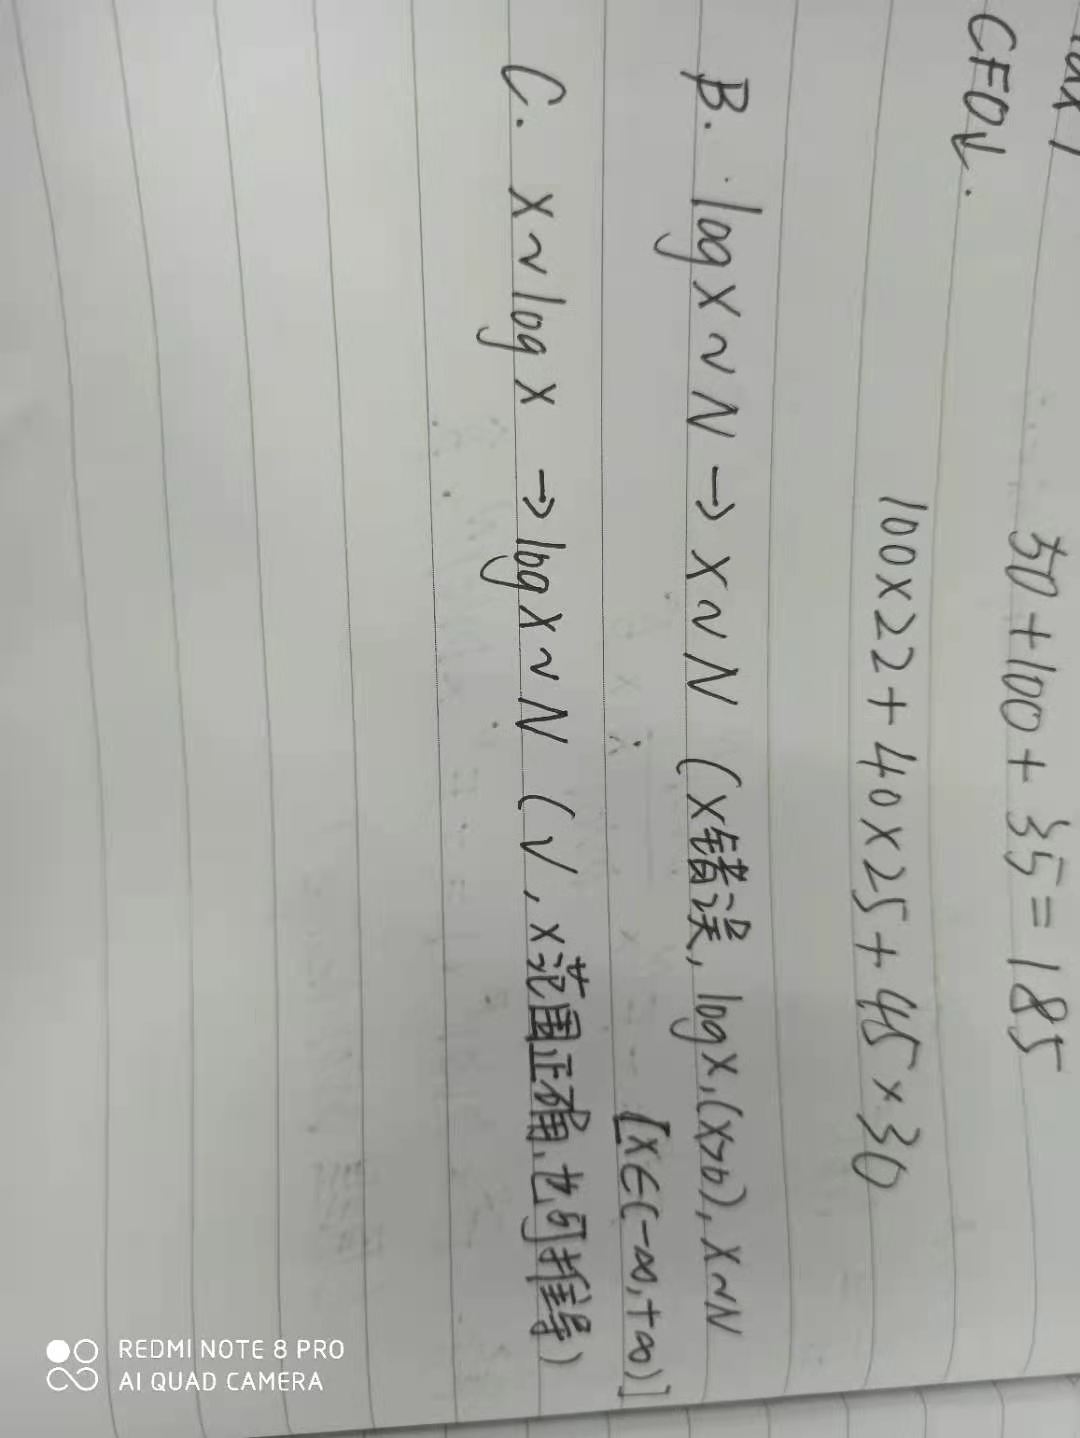 CFO↓.
50+100+35=185
100×22+40×25+45×30
B. log X ~ N → X ~ N (X错误, log X, (X>0), X~N
[X∈(-∞,+∞)]
C. X ~ log X → log X ~ N (√, X范围正确, 也可推导)
REDMI NOTE 8 PRO
AI QUAD CAMERA